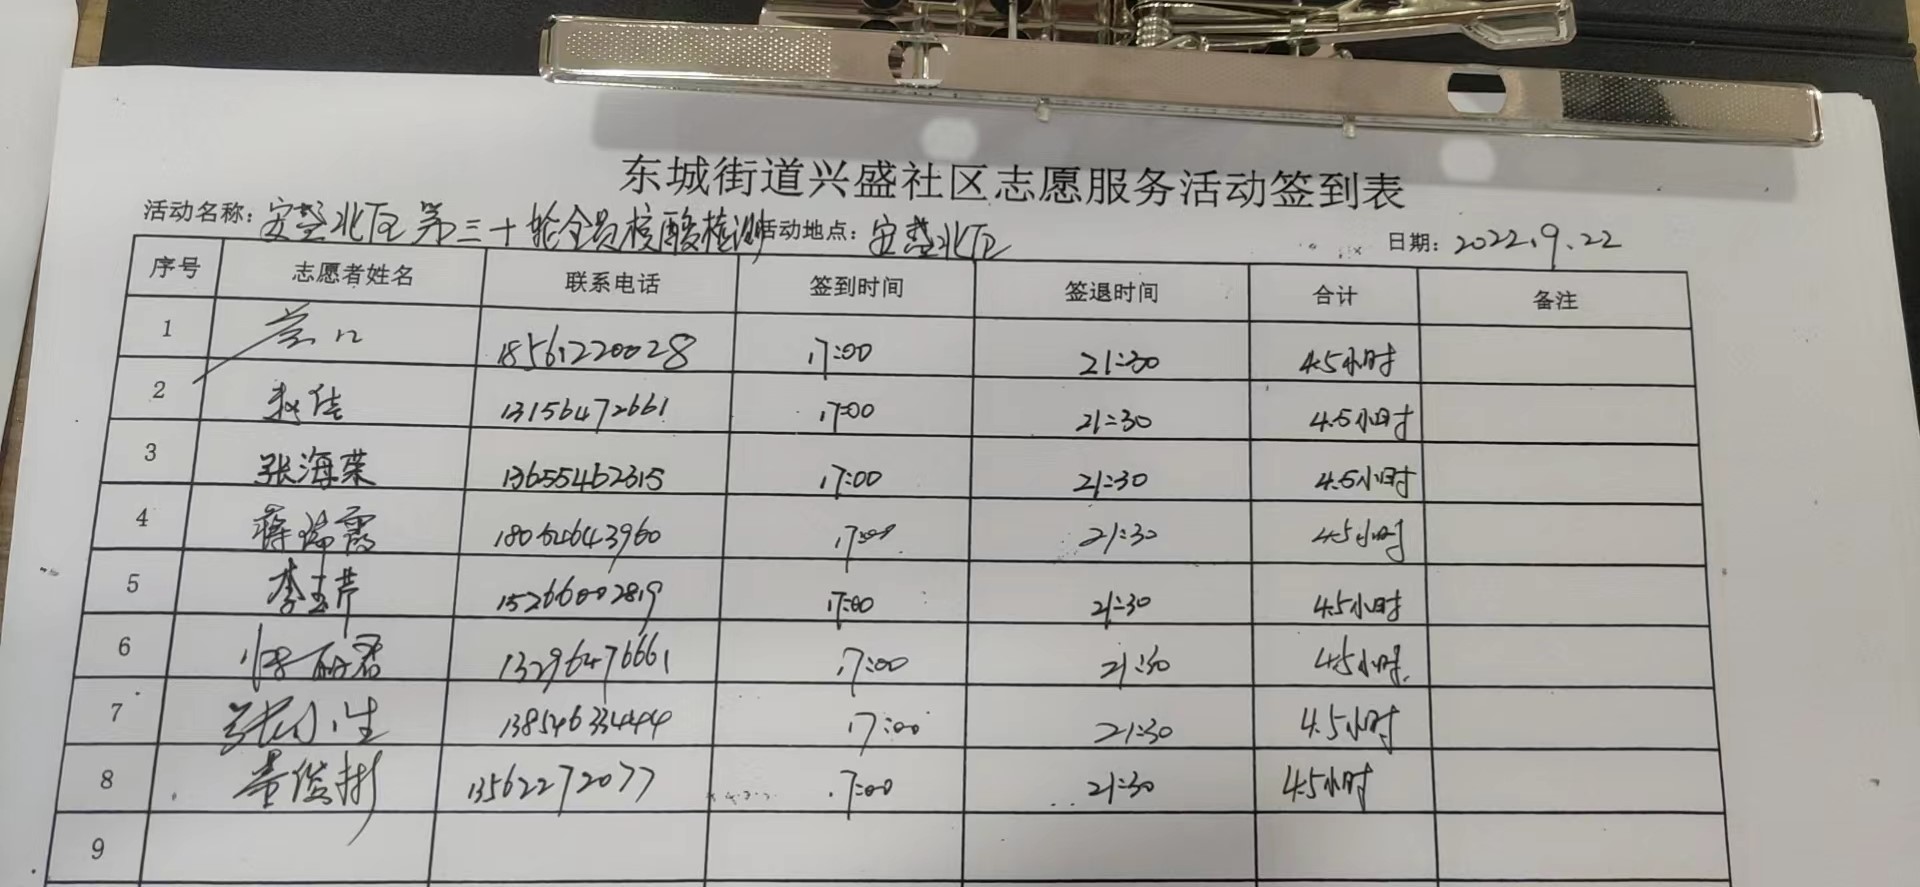 东城街道兴盛社区志愿服务活动签到表
活动名称: 安慧北区第三十轮全员核酸检测 活动地点: 安慧北区 日期: 2022.9.22
序号 志愿者姓名 联系电话 签到时间 签退时间 合计 备注
1 18561220028 17:00 21:30 4.5小时
2 赵佳 13156472661 17:00 21:30 4.5小时
3 张海荣 13655462315 17:00 21:30 4.5小时
4 蒋瑞霞 18064643960 17:00 21:30 4.5小时
5 李玉芹 15266002819 17:00 21:30 4.5小时
6 13296476661 17:00 21:30 4.5小时.
7 张小生 13854633444 17:00 21:30 4.5小时
8 董俊彬 13562272077 17:00 21:30 4.5小时
9